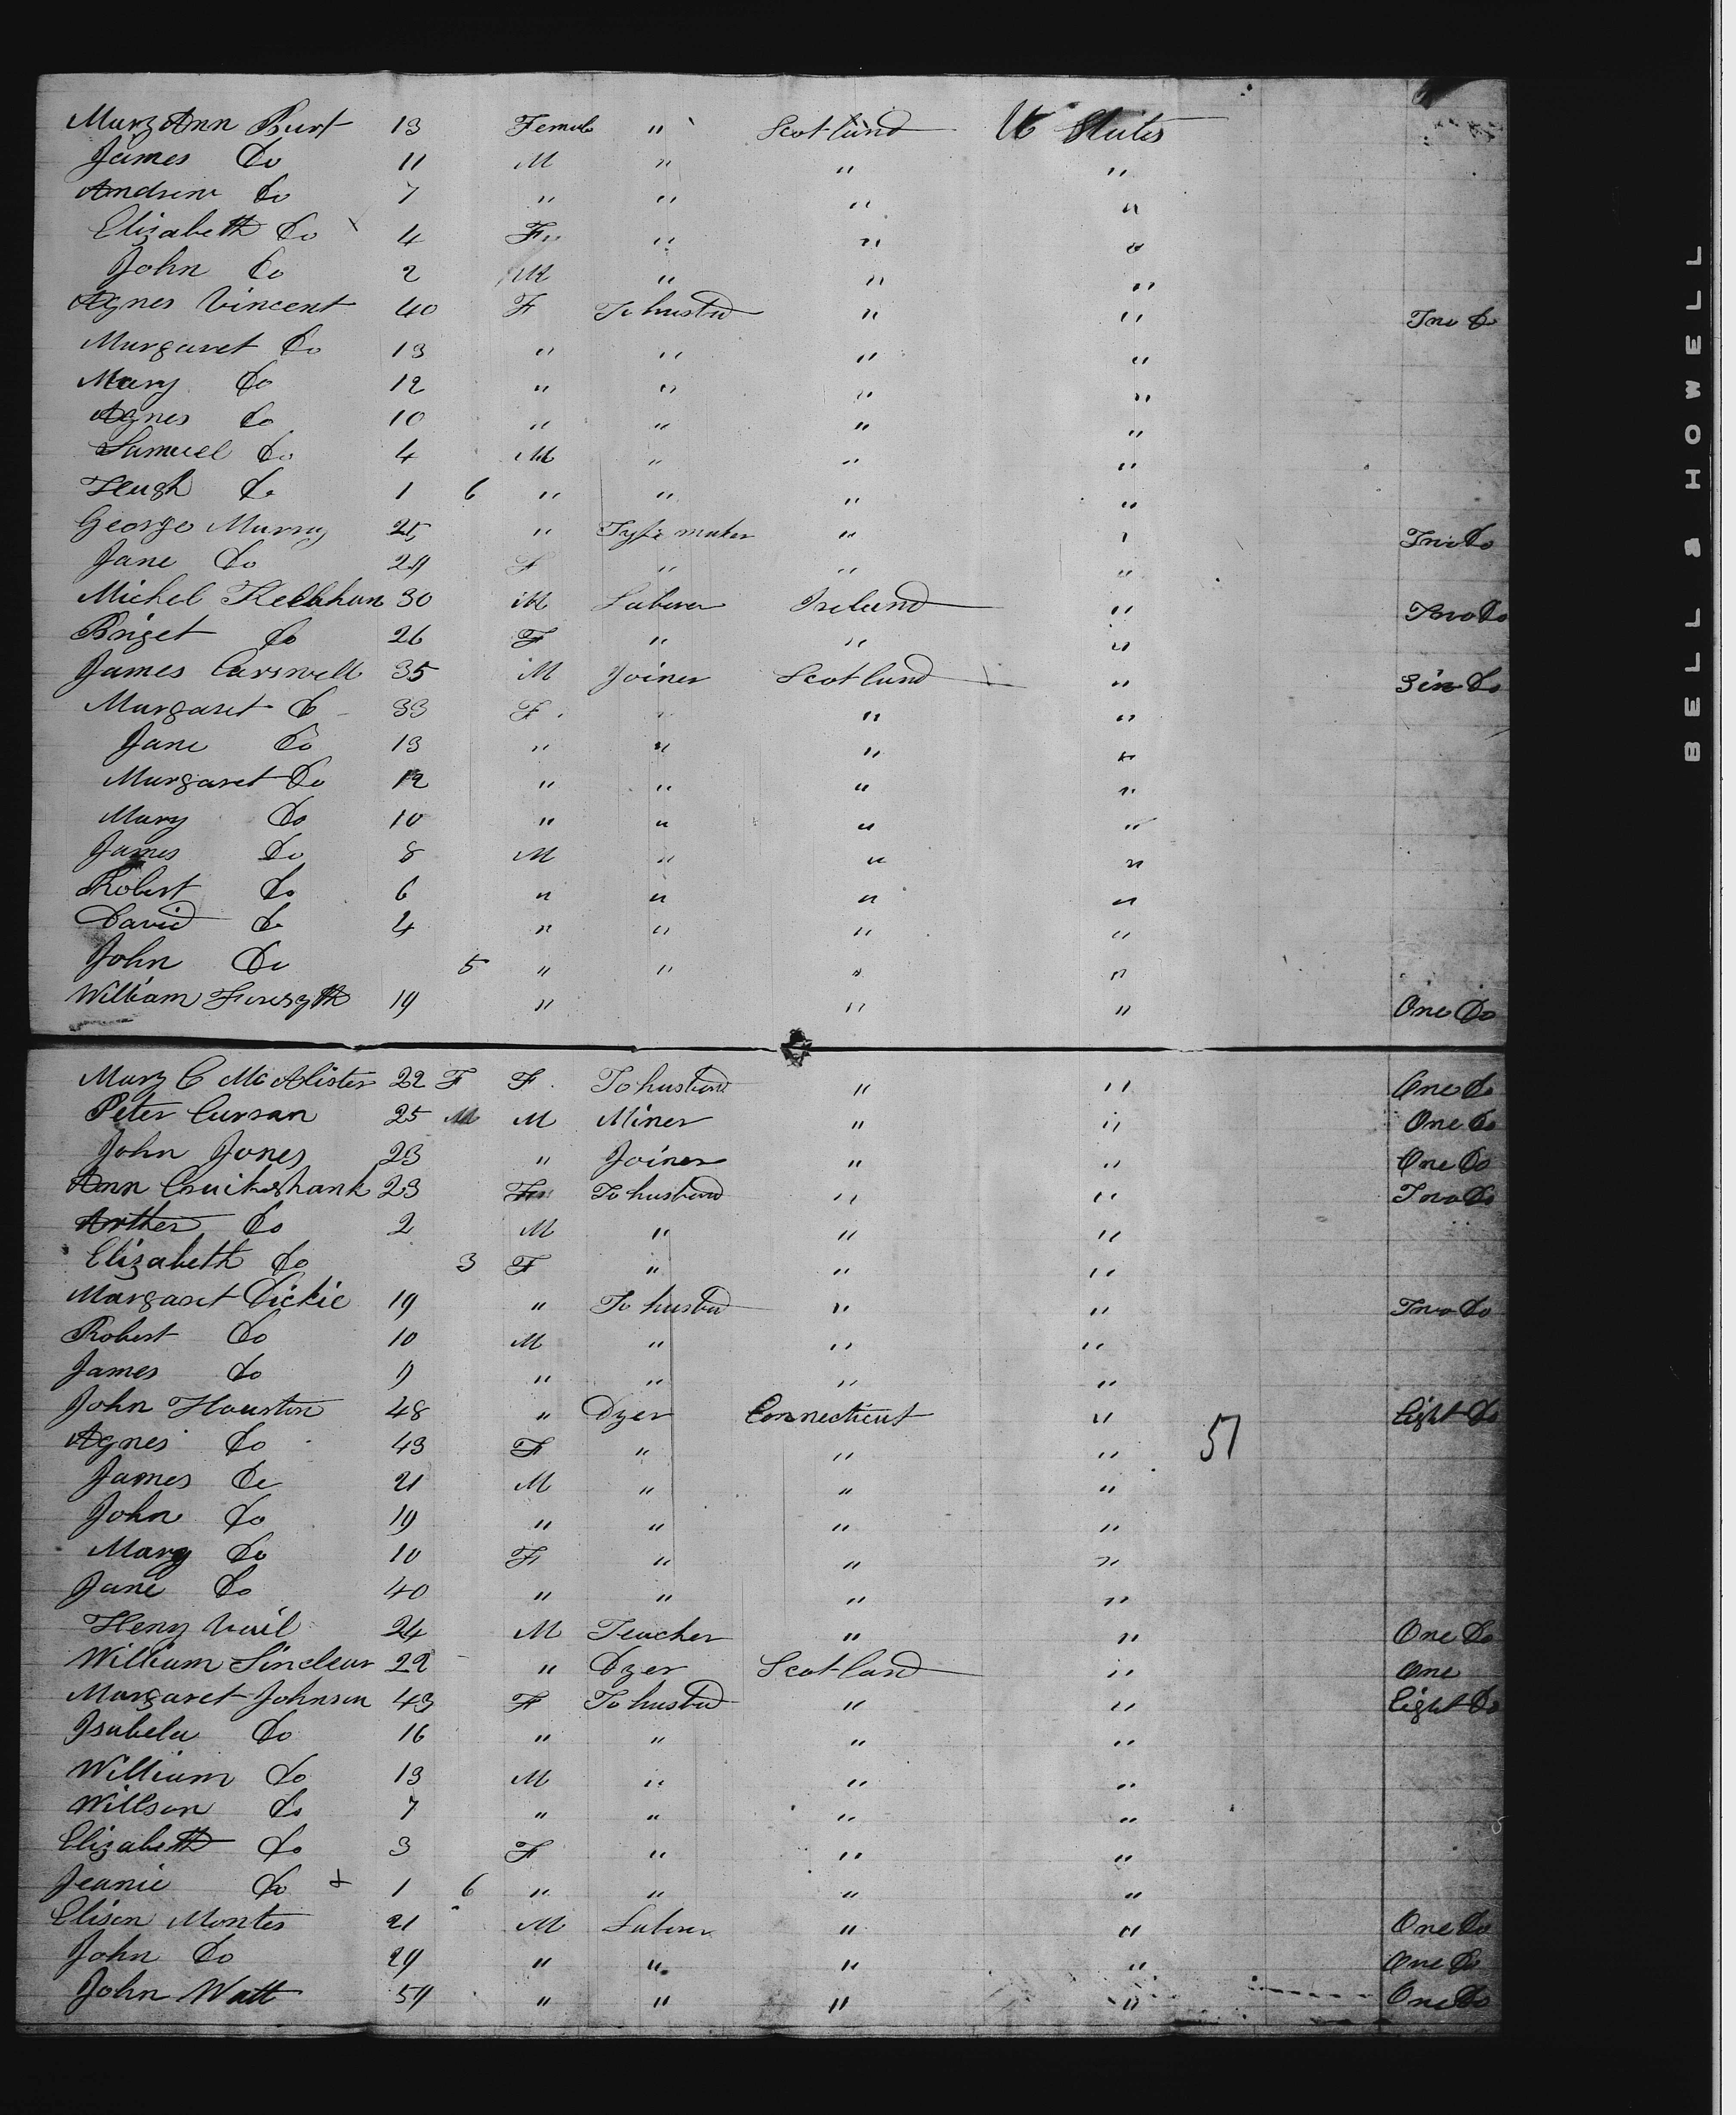 Mary Ann Burt 13 Female " Scotland U States
James Do 11 M " " "
Andrew Do 7 " " " "
Elizabeth Do 4 F " " "
John Do 2 M " " "
Agnes Vincent 40 F To husbd " " Two Do
Margaret Do 13 " " " "
Mary Do 12 " " " "
Agnes Do 10 " " " "
Samuel Do 4 M " " "
Hugh Do 1 6 " " " "
George Murray 25 " maker " " Two Do
Jane Do 29 F " " "
Michel 30 M Laborer Ireland " Two Do
Briget Do 26 F " " "
James Carswell 35 M Joiner Scotland " Do
Margaret Do 33 F " " "
Jane Do 13 " " " "
Margaret Do 12 " " " "
Mary Do 10 " " " "
James Do 8 M " " "
Robert Do 6 " " " "
David Do 4 " " " "
John Do 5 " " " "
William Forsyth 19 " " " One Do
Mary C McAlister 22 F F To husband " " One Do
Peter Curran 25 M M Miner " " One Do
John Jones 23 " Joiner " " One Do
Ann Cruikshank 23 F To husband " " Two Do
Arther Do 2 M " " "
Elizabeth Do 3 F " " "
Margaret Dickie 19 " To husbd " " Two Do
Robert Do 10 M " " "
James Do 9 " " " "
John Houston 48 " Dyer Connecticut " Eight Do
Agnes Do 43 F " " " 57
James Do 21 M " " "
John Do 19 " " " "
Mary Do 10 F " " "
Jane Do 40 " " " "
Heny Vail 24 M Teacher " " One Do
William Sinclear 22 " Dyer Scotland " One
Margaret Johnson 43 F To husbd " " Eight Do
Isabela Do 16 " " " "
William Do 13 M " " "
Willson Do 7 " " " "
Elizabeth Do 3 F " " "
Jeanie Do 1 6 " " " "
Elison Montes 21 M Laborer " " One Do
John Do 29 " " " " One Do
John Watt 59 " " " " One Do
BELL & HOWELL